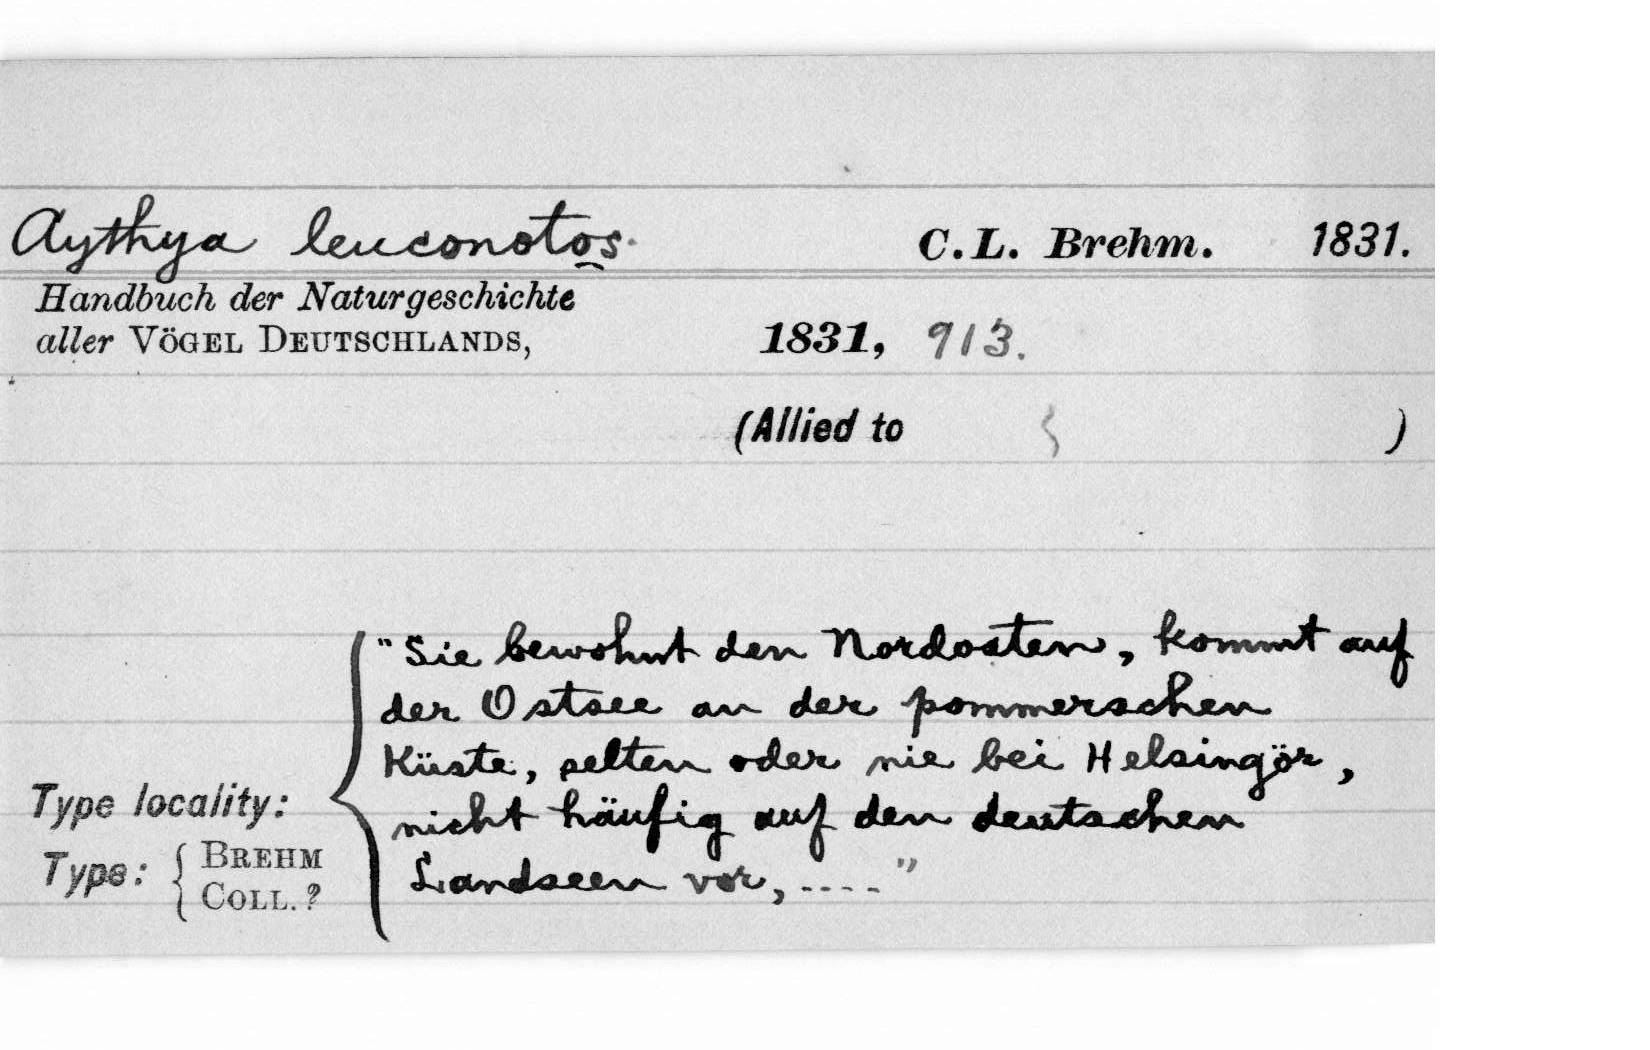 Aythya leuconotos. C.L. Brehm. 1831.
Handbuch der Naturgeschichte
aller VÖGEL DEUTSCHLANDS, 1831, 913.
(Allied to )
"Sie bewohnt den Nordosten, kommt auf
der Ostsee an der pommerschen
Küste, selten oder nie bei Helsingör,
Type locality: nicht häufig auf den deutschen
Type: { BREHM COLL. ? Landseen vor, ...."